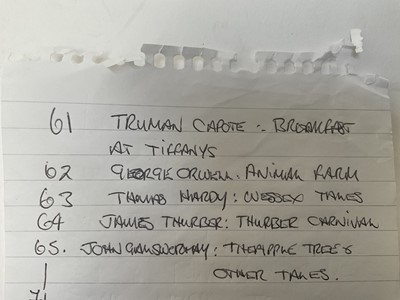 61 TRUMAN CAPOTE :. BREAKFAST
AT TIFFANYS
62 GEORGE ORWELL : ANIMAL FARM
63 THOMAS HARDY : WESSEX TALES
64 JAMES THURBER : THURBER CARNIVAL
65. JOHN GALSWORTHY : THE APPLE TREE &
OTHER TALES.